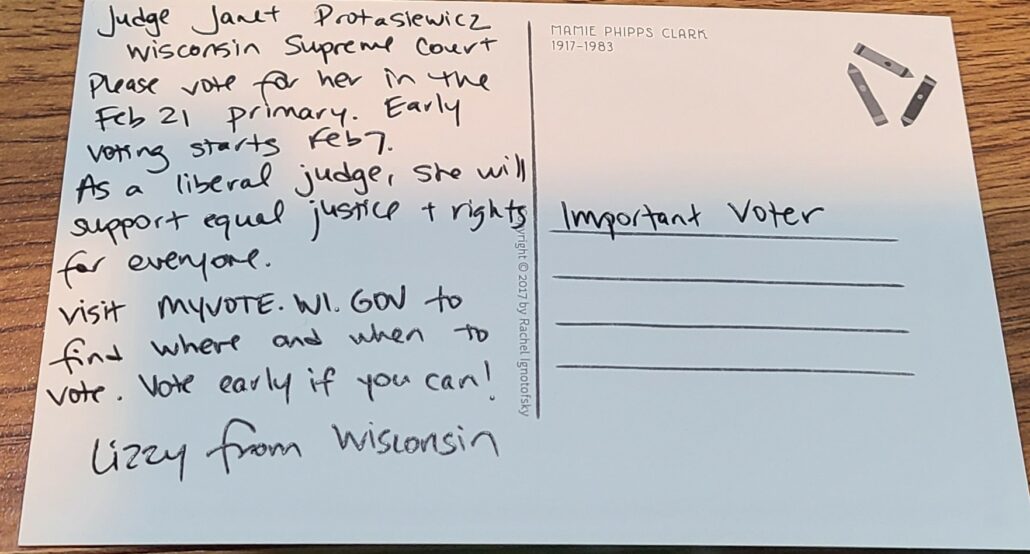 Judge Janet Protasiewicz
Wisconsin Supreme Court
Please vote for her in the
Feb 21 primary. Early
voting starts Feb 7.
As a liberal judge, she will
support equal justice + rights
for everyone.
visit MYVOTE.WI.GOV to
find where and when to
vote. Vote early if you can!
Lizzy from Wisconsin
MAMIE PHIPPS CLARK
1917-1983
Important Voter
yright © 2017 by Rachel Ignotofsky